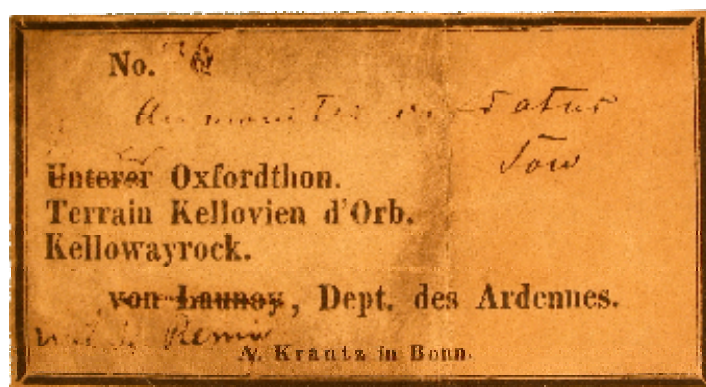 No.
Ammonites cordatus
Sow
Unterer Oxfordthon.
Terrain Kellovien d'Orb.
Kellowayrock.
von Launoy, Dept. des Ardennes.
A. Krantz in Bonn.